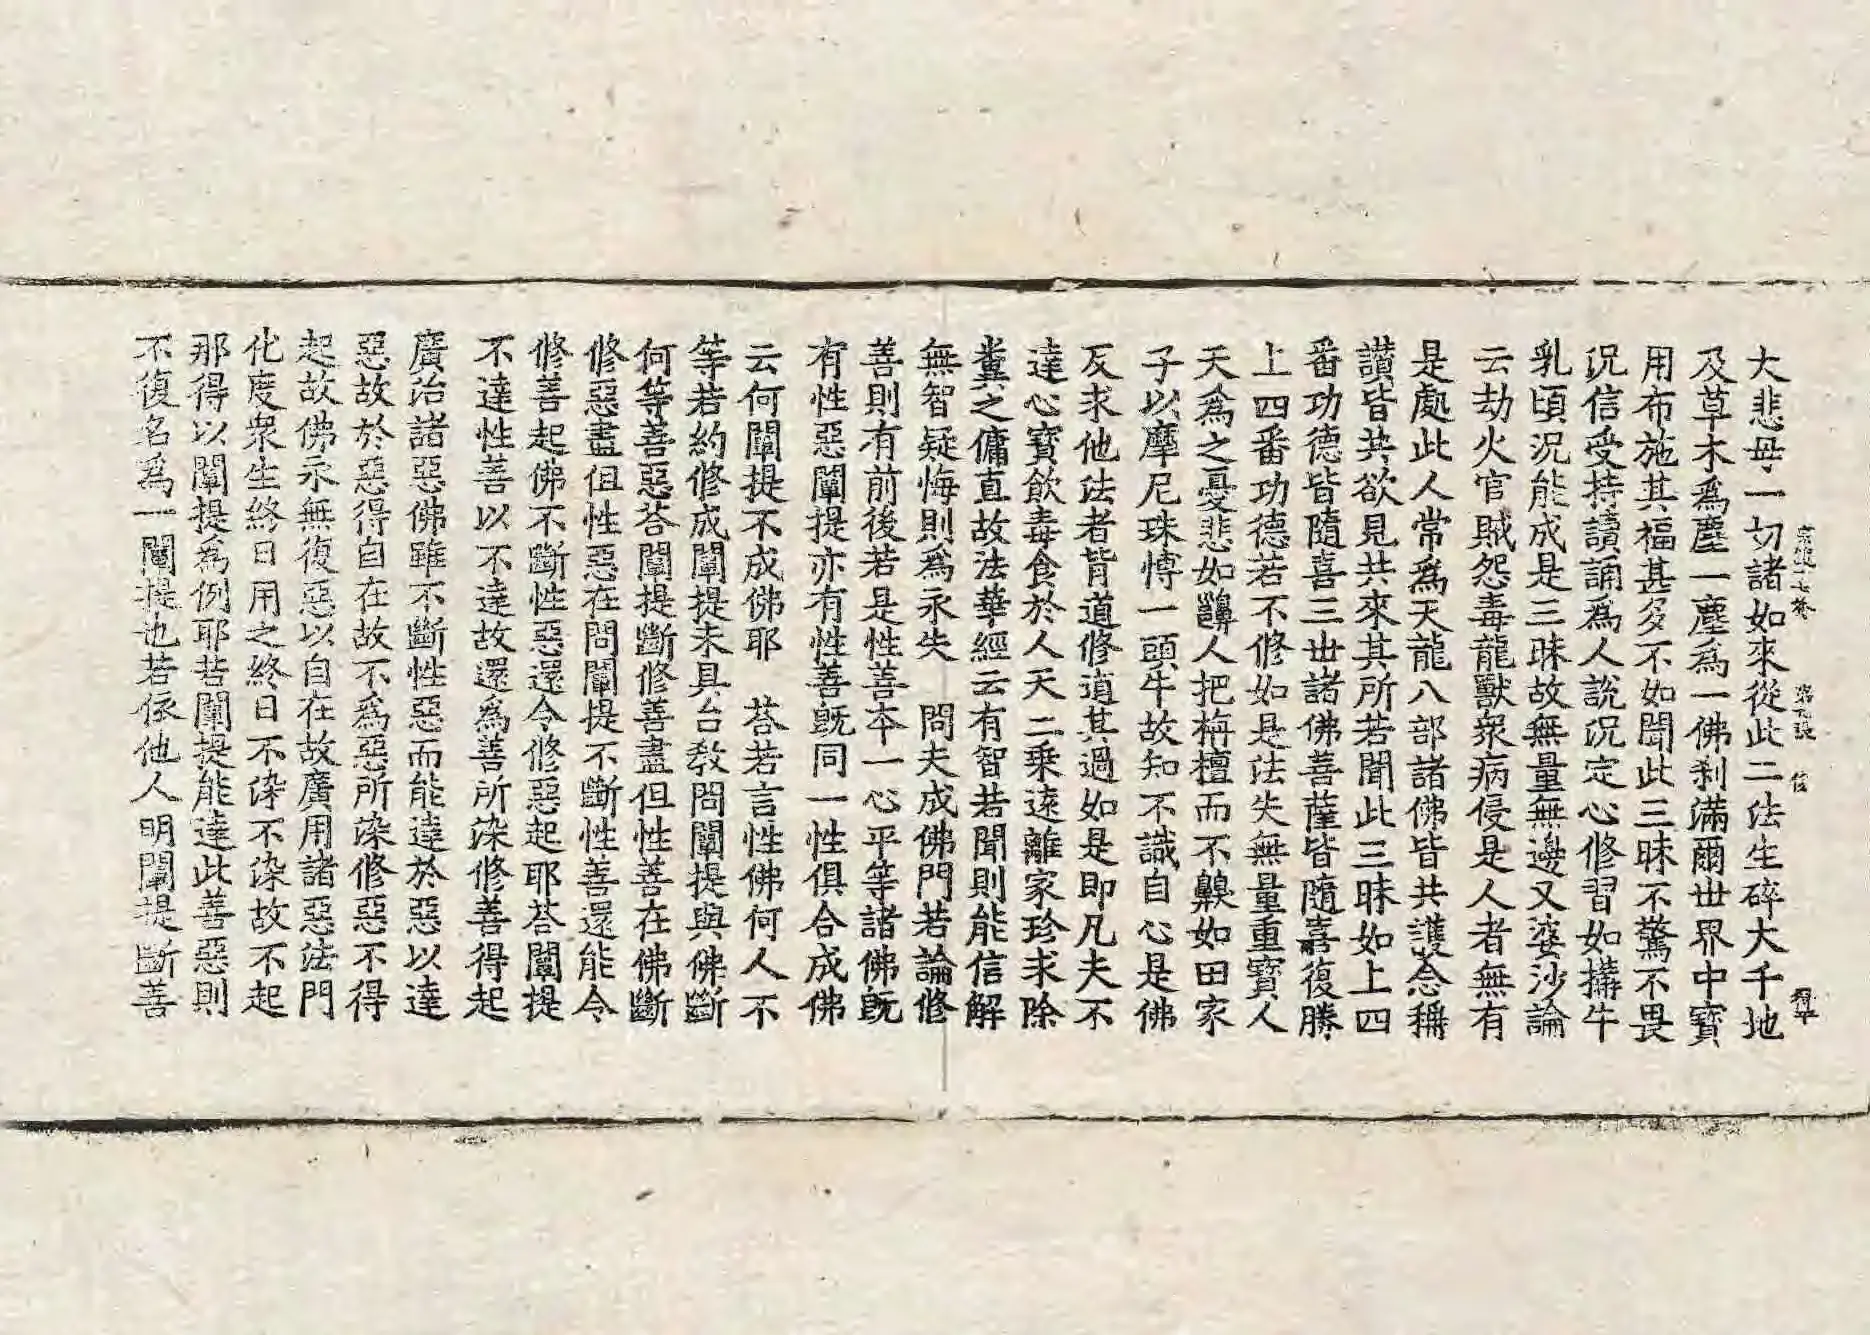 大悲母一切諸如來從此二法生碎大千地
及草木為塵一塵為一佛剎滿爾世界中寶
用布施其福甚多不如聞此三昧不驚不畏
況信受持讀誦為人說況定心修習如𤛓牛
乳頃況能成是三昧故無量無邊又婆沙論
云劫火官賊怨毒龍獸衆病侵是人者無有
是處此人常為天龍八部諸佛皆共護念稱
讚皆共欲見共來其所若聞此三昧如上四
番功德皆隨喜三世諸佛菩薩皆隨喜復勝
上四番功德若不修如是法失無量重寶人
天為之憂悲如齆人把栴檀而不齅如田家
子以摩尼珠愽一頭牛故知不識自心是佛
反求他法者背道修道其過如是即凡夫不
達心寶飲毒食於人天二乘遠離家珍求除
糞之傭直故法華經云有智若聞則能信解
無智疑悔則為永失　問夫成佛門若論修
善則有前後若是性善本一心平等諸佛旣
有性惡闡提亦有性善旣同一性俱合成佛
云何闡提不成佛耶　荅若言性佛何人不
等若約修成闡提未具台教問闡提與佛斷
何等善惡荅闡提斷修善盡但性善在佛斷
修惡盡但性惡在問闡提不斷性善還能令
修善起佛不斷性惡還令修惡起耶荅闡提
不達性善以不達故還為善所染修善得起
廣治諸惡佛雖不斷性惡而能達於惡以達
惡故於惡得自在故不為惡所染修惡不得
起故佛永無復惡以自在故廣用諸惡法門
化度衆生終日用之終日不染不染故不起
那得以闡提為例耶若闡提能達此善惡則
不復名為一闡提也若依他人明闡提斷善